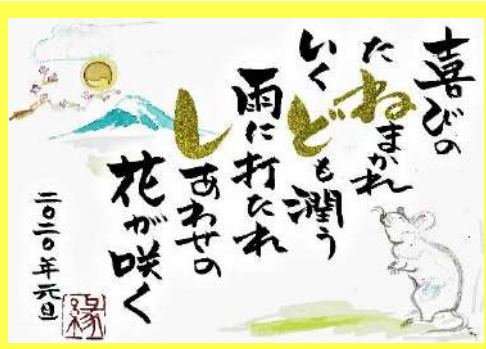 喜びの
たねまかれ
いくども潤う
雨に打たれ
しあわせの
花が咲く
二〇二〇年元旦
縁